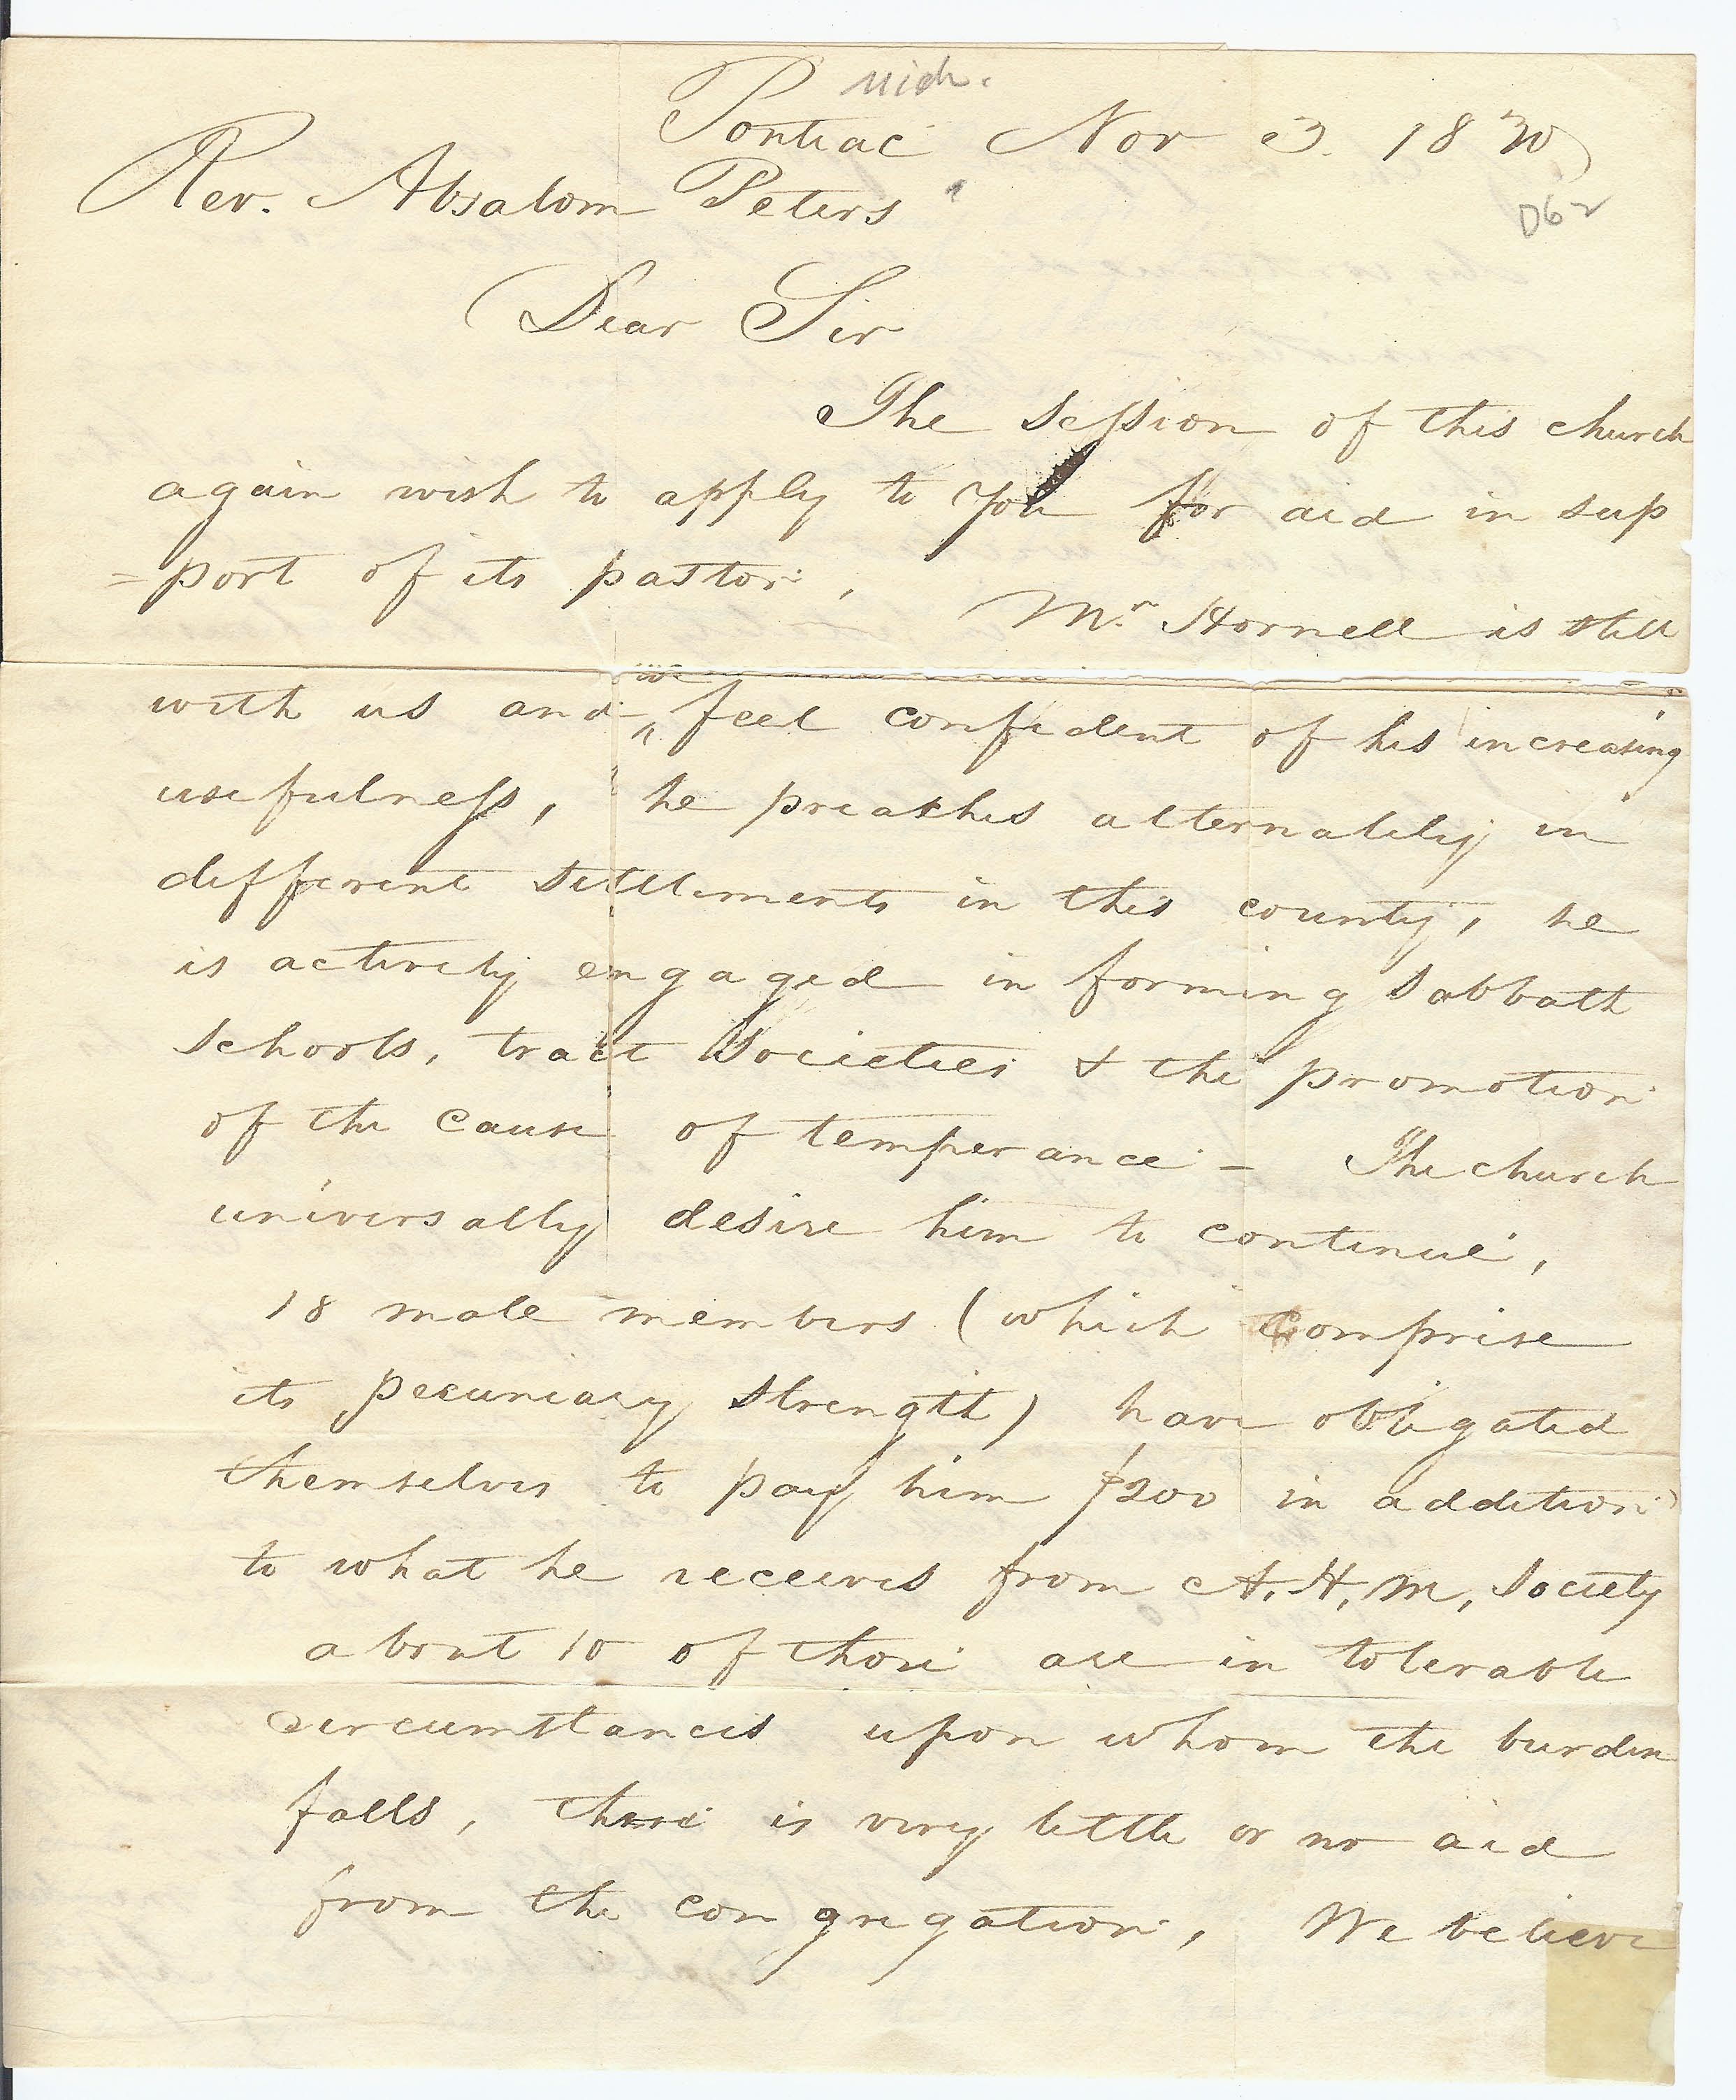 Mich.
Pontiac Nov 3. 1830
Rev. Absalom Peters
D62
Dear Sir
The session of this church
again wish to apply to you for aid in sup
=port of its pastor.
Mr. Hornell is still
with us and we feel confident of his increasing
usefulness, he preaches alternately in
different settlements in this county, he
is actively engaged in forming Sabbath
Schools, tract Societies & the promotion
of the cause of temperance - The church
universally desire him to continue,
18 male members (which comprise
its pecuniary strength) have obligated
themselves to pay him $200 in addition
to what he receives from A. H, M, Society
about 10 of those are in tolerable
circumstances upon whom the burden
falls, there is very little or no aid
from the congregation, We believe